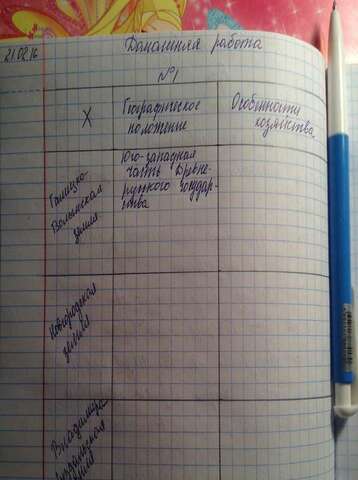 21.02.16
Домашняя работа
№1
X
Географическое
положение
Особенности
хозяйства.
Галицко-
Волынская
земля
Юго-западная
часть Древне-
русского государ-
ства
Новгородская
земля
Владимиро-
Суздальская
земля